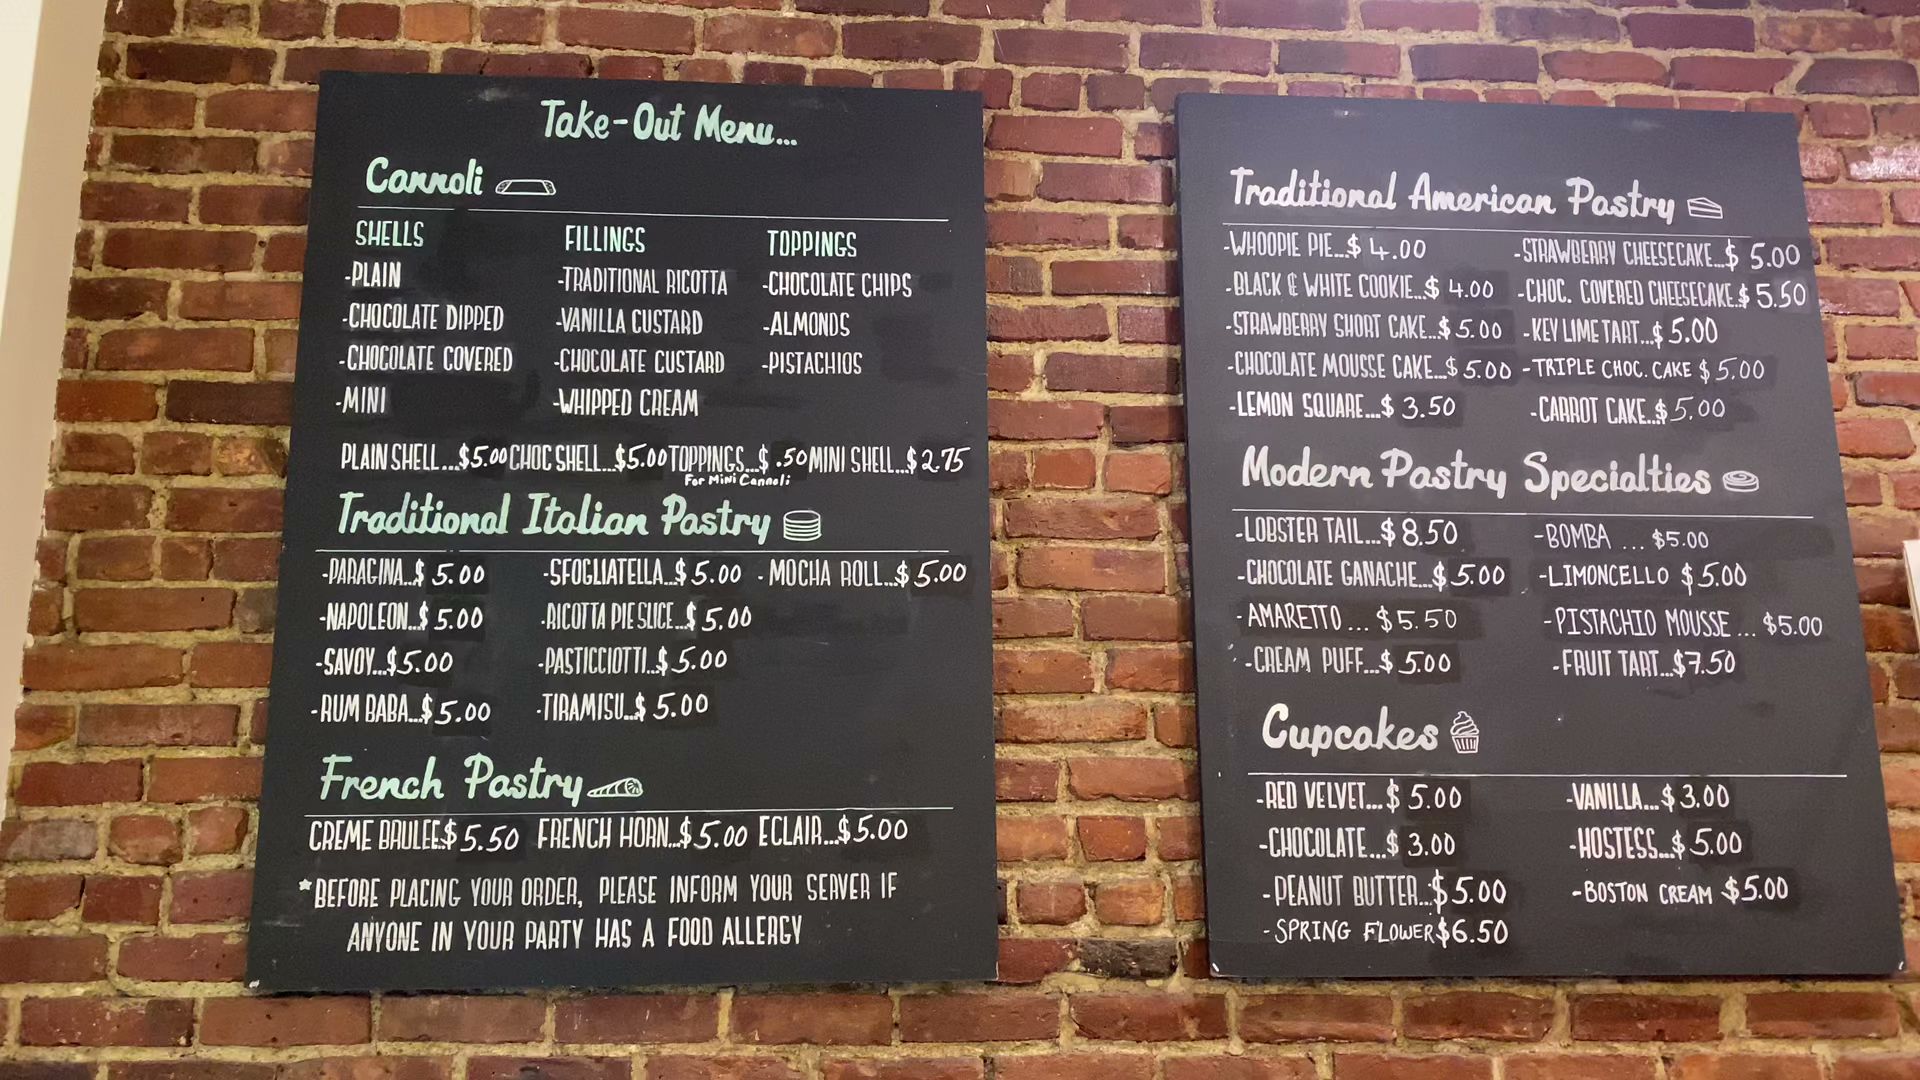 Take-Out Menu...
Cannoli
SHELLS FILLINGS TOPPINGS
-PLAIN -TRADITIONAL RICOTTA -CHOCOLATE CHIPS
-CHOCOLATE DIPPED -VANILLA CUSTARD -ALMONDS
-CHOCOLATE COVERED -CHOCOLATE CUSTARD -PISTACHIOS
-MINI -WHIPPED CREAM
PLAIN SHELL...$5.00 CHOC SHELL...$5.00 TOPPINGS...$.50 MINI SHELL...$2.75
For Mini Cannoli
Traditional Italian Pastry
-PARAGINA...$5.00 -SFOGLIATELLA...$5.00 -MOCHA ROLL...$5.00
-NAPOLEON...$5.00 -RICOTTA PIE SLICE...$5.00
-SAVOY...$5.00 -PASTICCIOTTI...$5.00
-RUM BABA...$5.00 -TIRAMISU...$5.00
French Pastry
CREME BRULEE$5.50 FRENCH HORN...$5.00 ECLAIR...$5.00
*BEFORE PLACING YOUR ORDER, PLEASE INFORM YOUR SERVER IF
ANYONE IN YOUR PARTY HAS A FOOD ALLERGY
Traditional American Pastry
-WHOOPIE PIE...$4.00 -STRAWBERRY CHEESECAKE...$5.00
-BLACK & WHITE COOKIE...$4.00 -CHOC. COVERED CHEESECAKE.$5.50
-STRAWBERRY SHORT CAKE...$5.00 -KEY LIME TART...$5.00
-CHOCOLATE MOUSSE CAKE...$5.00 -TRIPLE CHOC. CAKE $5.00
-LEMON SQUARE...$3.50 -CARROT CAKE...$5.00
Modern Pastry Specialties
-LOBSTER TAIL...$8.50 -BOMBA ... $5.00
-CHOCOLATE GANACHE...$5.00 -LIMONCELLO $5.00
-AMARETTO ... $5.50 -PISTACHIO MOUSSE ... $5.00
-CREAM PUFF...$5.00 -FRUIT TART...$7.50
Cupcakes
-RED VELVET...$5.00 -VANILLA...$3.00
-CHOCOLATE...$3.00 -HOSTESS...$5.00
-PEANUT BUTTER...$5.00 -BOSTON CREAM $5.00
-SPRING FLOWER $6.50